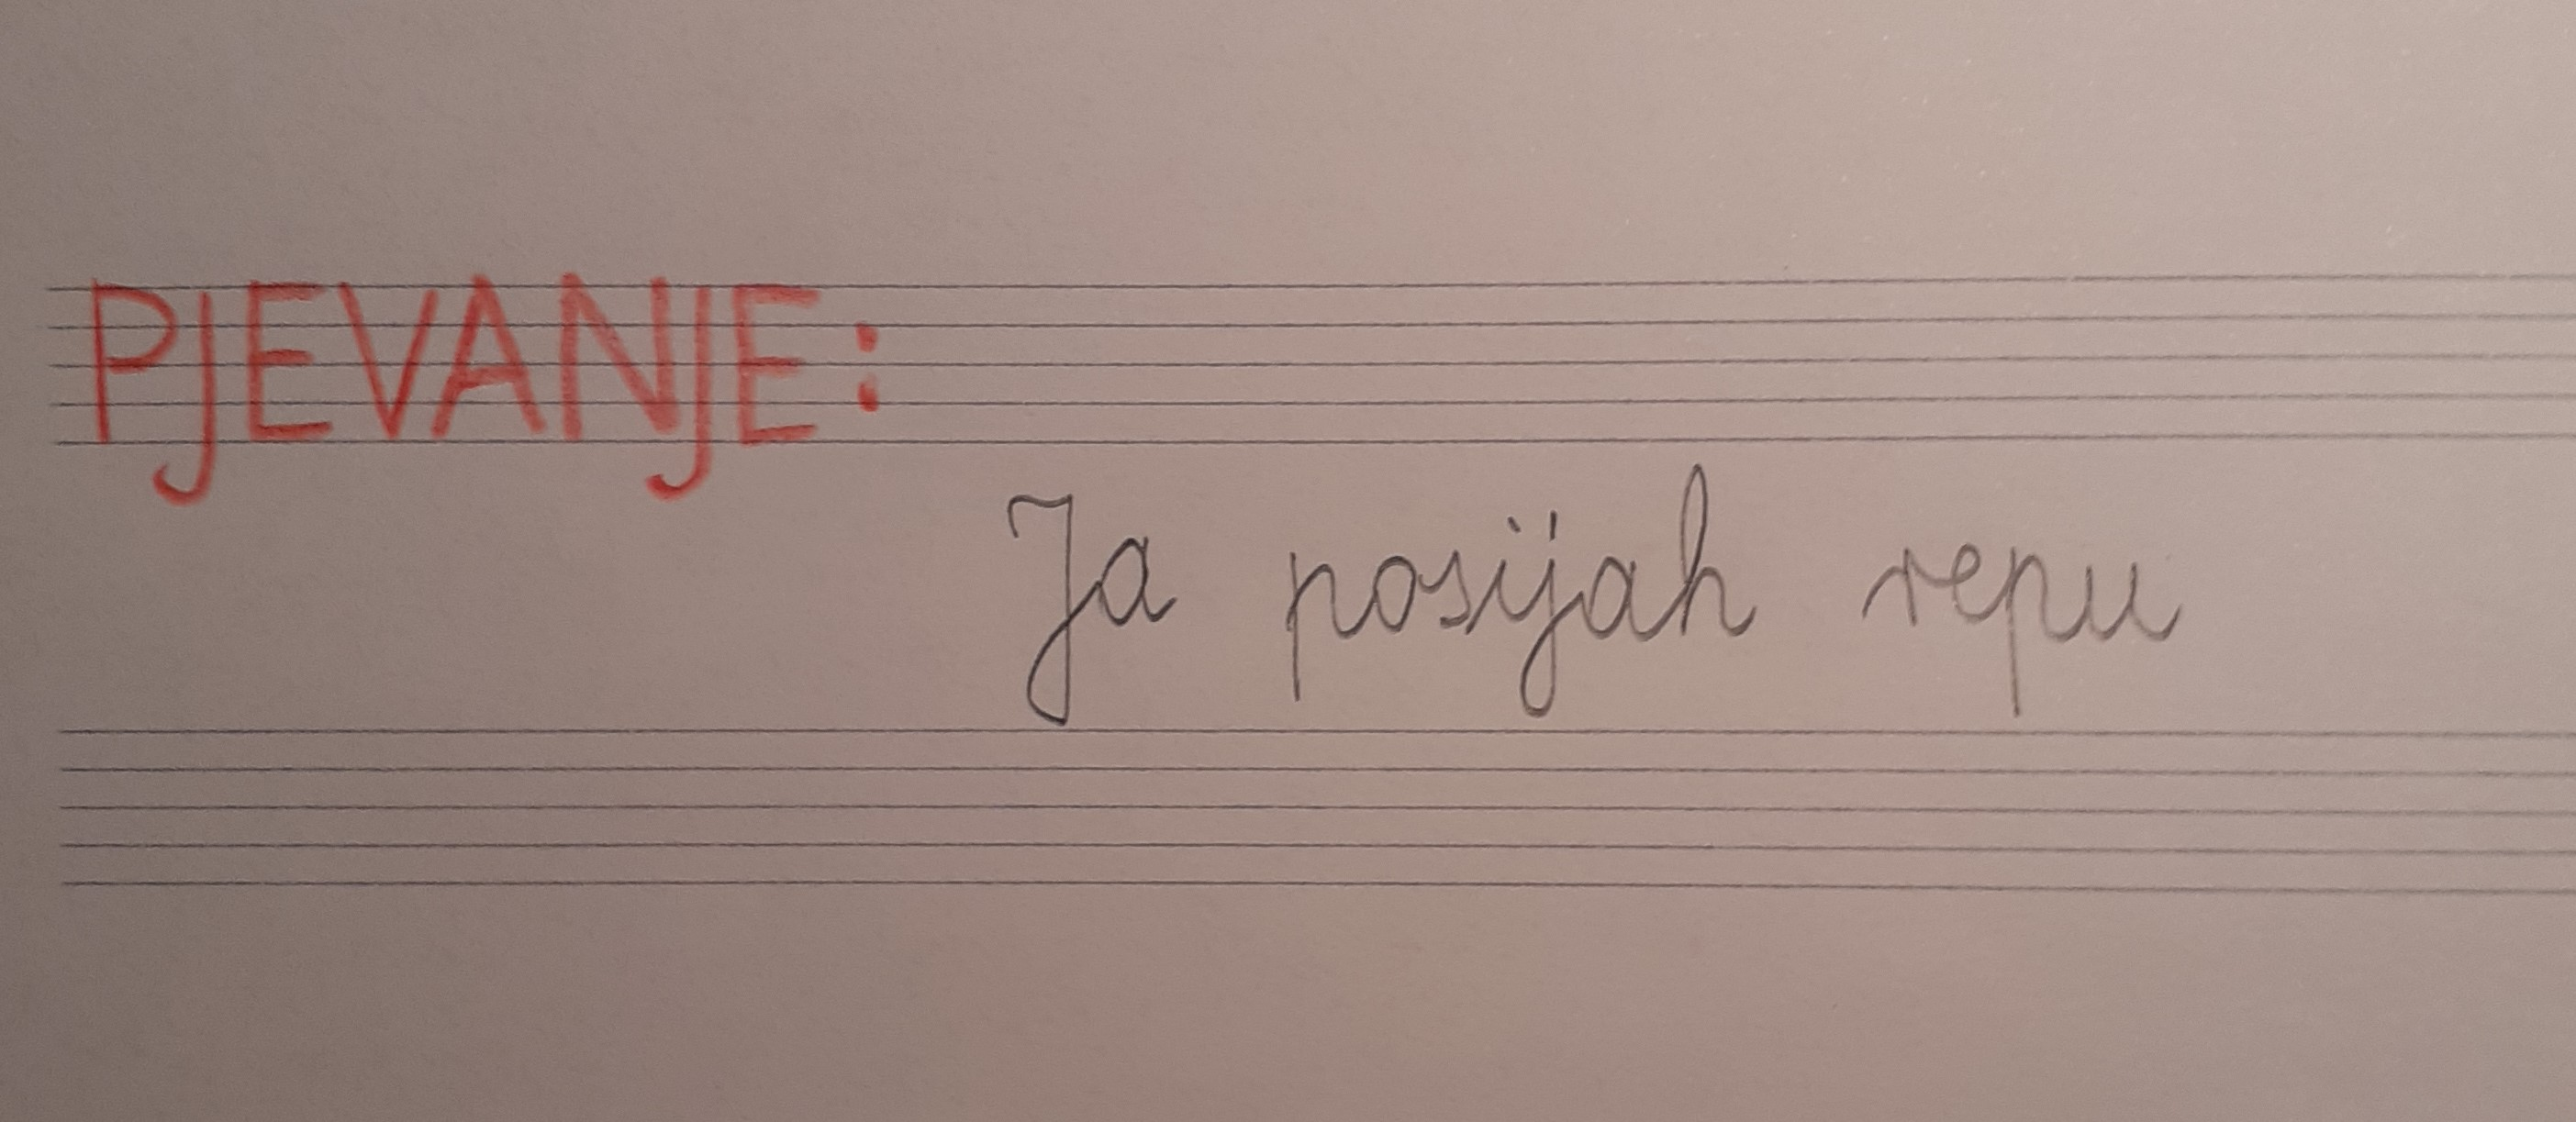 PJEVANJE:
Ja posijah repu